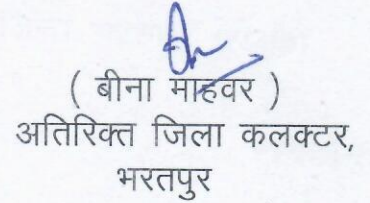 ( बीना माहवर )
अतिरिक्त जिला कलक्टर,
भरतपुर